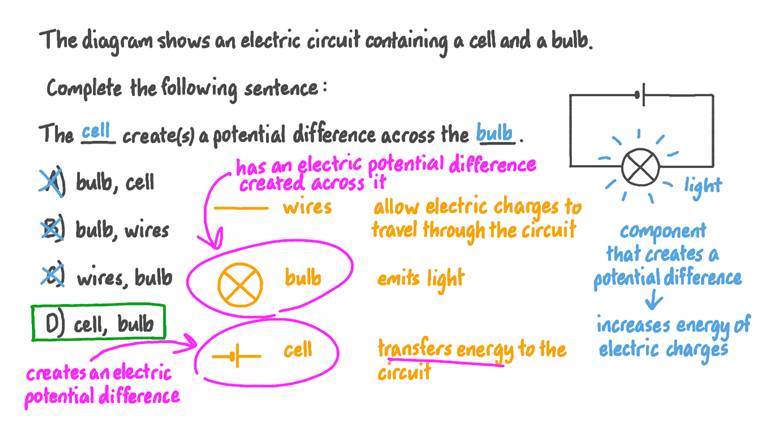 The diagram shows an electric circuit containing a cell and a bulb.
Complete the following sentence:
The cell create(s) a potential difference across the bulb.
A) bulb, cell
B) bulb, wires
C) wires, bulb
D) cell, bulb
has an electric potential difference
created across it
wires
allow electric charges to
travel through the circuit
bulb
emits light
cell
transfers energy to the
circuit
creates an electric
potential difference
light
component
that creates a
potential difference
increases energy of
electric charges